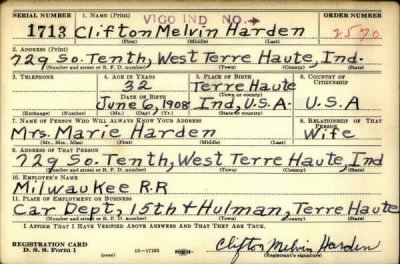 SERIAL NUMBER 1. NAME (Print) VIGO IND NO.→ ORDER NUMBER
1713 Clifton Melvin Harden 2570
(First) (Middle) (Last)
2. ADDRESS (Print)
729 So. Tenth, West Terre Haute, Ind.
(Number and street or R. F. D. number) (Town) (County) (State)
3. TELEPHONE 4. AGE IN YEARS 5. PLACE OF BIRTH 6. COUNTRY OF CITIZENSHIP
32 Terre Haute
DATE OF BIRTH (Town or county)
June 6, 1908 Ind, U.S.A. U.S.A
(Exchange) (Number) (Mo.) (Day) (Yr.) (State or country)
7. NAME OF PERSON WHO WILL ALWAYS KNOW YOUR ADDRESS 8. RELATIONSHIP OF THAT PERSON
Mrs. Marie Harden Wife
(Mr., Mrs., Miss) (First) (Middle) (Last)
9. ADDRESS OF THAT PERSON
729 So. Tenth, West Terre Haute, Ind
(Number and street or R. F. D. number) (Town) (County) (State)
10. EMPLOYER'S NAME
Milwaukee R.R
11. PLACE OF EMPLOYMENT OR BUSINESS
Car Dept, 15th + Hulman, Terre Haute
(Number and street or R. F. D. number) (Town) (County) (State)
I AFFIRM THAT I HAVE VERIFIED ABOVE ANSWERS AND THAT THEY ARE TRUE.
REGISTRATION CARD
D. S. S. Form 1 (over) 16—17105 Clifton Melvin Harden
(Registrant's signature)